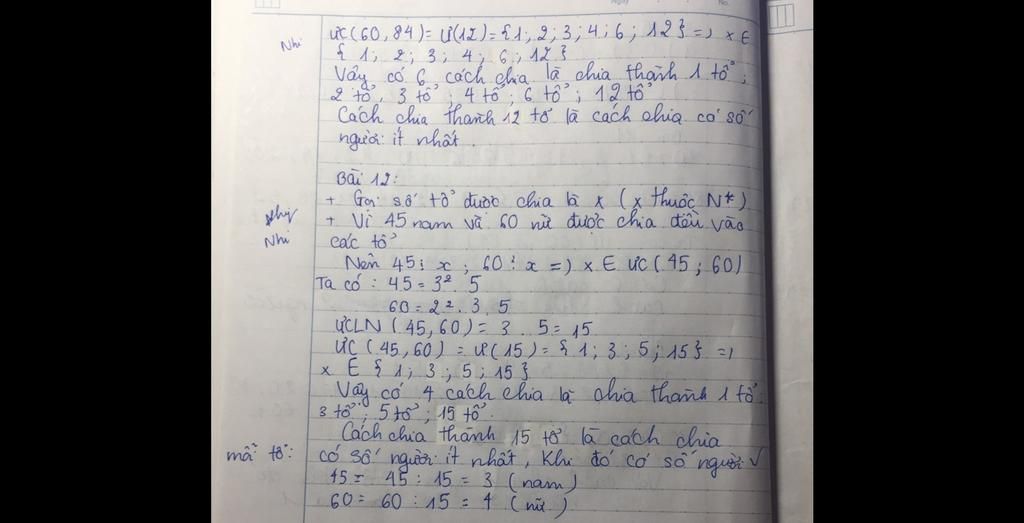 Nhi
ƯC(60,84)= Ư(12)= {1; 2; 3; 4; 6; 12} => x E
{1; 2; 3; 4; 6; 12}
Vậy có 6 cách chia là chia thành 1 tổ;
2 tổ, 3 tổ; 4 tổ; 6 tổ; 12 tổ
Cách chia thành 12 tổ là cách chia có số
người ít nhất.
Bài 12:
+ Gọi số tổ được chia là x (x thuộc N*)
+ Vì 45 nam và 60 nữ được chia đều vào
Nhi
các tổ
Nên 45⋮x; 60⋮x => x E ƯC(45; 60)
Ta có: 45= 3². 5
60= 2². 3. 5
ƯCLN(45,60)= 3. 5= 15
ƯC(45,60) = Ư(15)= {1; 3; 5; 15} =>
x E {1; 3; 5; 15}
Vậy có 4 cách chia là chia thành 1 tổ;
3 tổ; 5 tổ; 15 tổ.
Cách chia thành 15 tổ là cách chia
có số người ít nhất, Khi đó có số người √
mỗi tổ:
45= 45 : 15 = 3 (nam)
60= 60 : 15 = 4 (nữ)